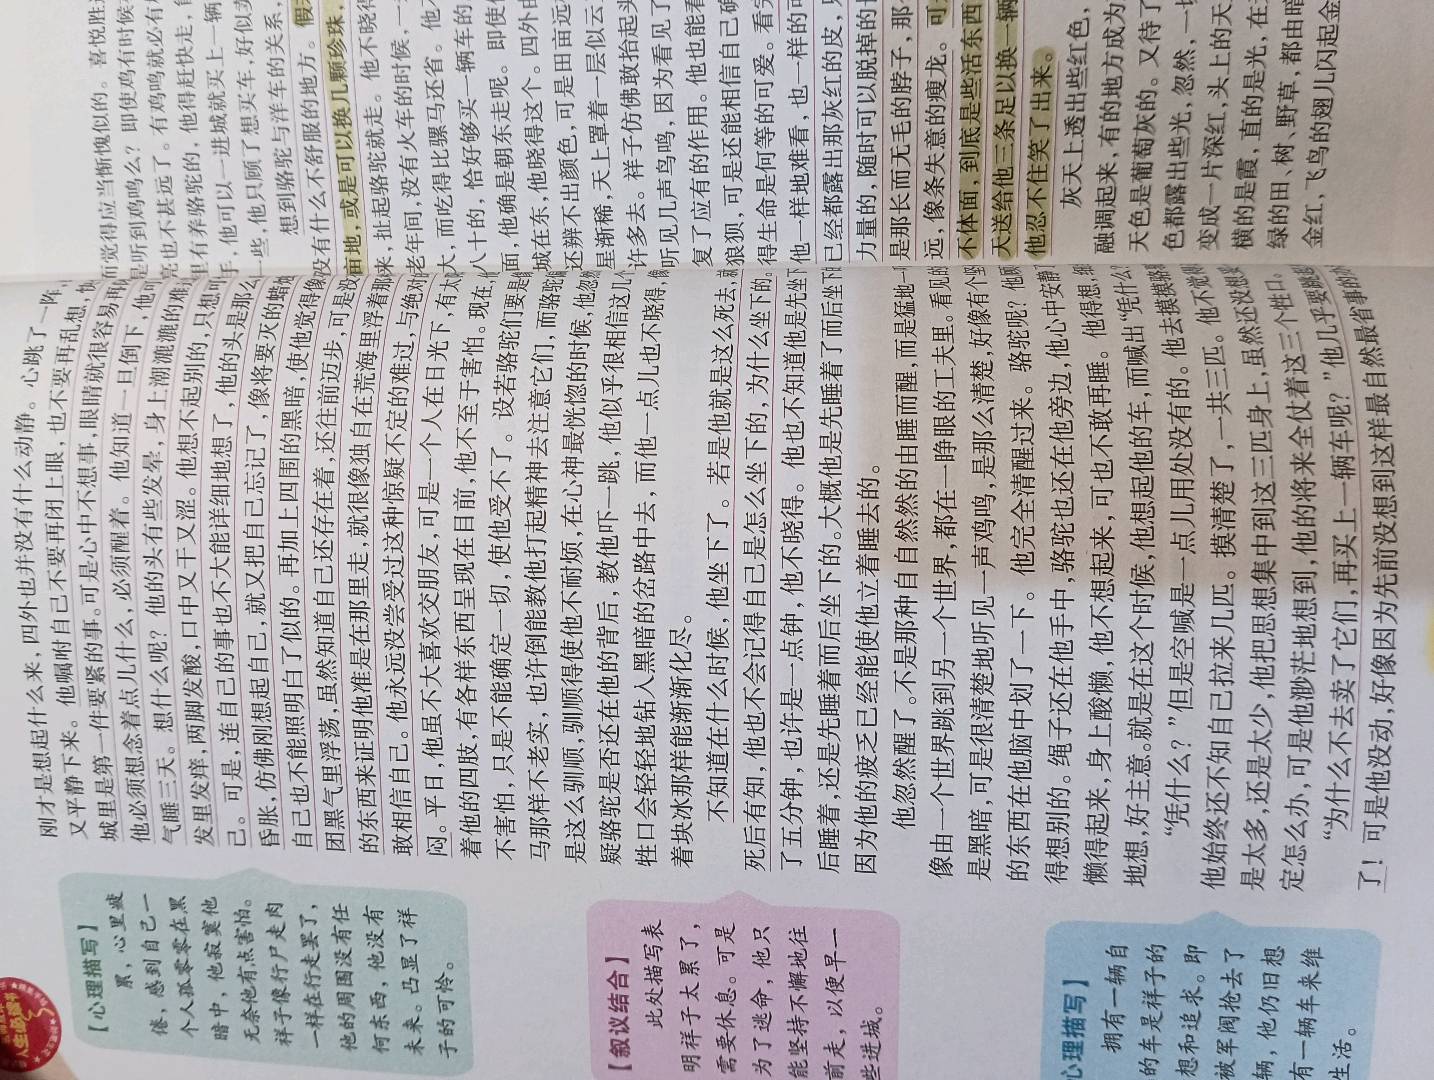 【心理描写】
累，心里疲
倦，感到自己一
个人孤零零在黑
暗中，他寂寞他
无奈他有点害怕。
祥子像行尸走肉
一样在行走罢了，
他的周围没有任
何东西，他没有
未来。凸显了祥
子的可怜。
【叙议结合】
此处描写表
明祥子太累了，
需要休息。可是
为了逃命，他只
能坚持不懈地往
前走，以便早一
些进城。
心理描写】
拥有一辆自
的车是祥子的
想和追求。即
被军阀抢去了
辆，他仍旧想
有一辆车来维
生活。
刚才是想起什么来，四外也并没有什么动静。心跳了一阵，
又平静下来。他嘱咐自己不要再闭上眼，也不要再乱想，快
城里是第一件要紧的事。可是心中不想事，眼睛就很容易再
他必须想念着点儿什么，必须醒着。他知道一旦倒下，他可
气睡三天。想什么呢？他的头有些发晕，身上潮漉漉的难
发里发痒，两脚发酸，口中又干又涩。他想不起别的，只想可
己。可是，连自己的事也不大能详细地想了，他的头是那么
昏胀，仿佛刚想起自己，就又把自己忘记了，像将要灭的蜡烛
自己也不能照明白了似的。再加上四围的黑暗，使他觉得像
团黑气里浮荡，虽然知道自己还存在着，还往前迈步，可是没
的东西来证明他准是在那里走，就很像独自在荒海里浮着那
敢相信自己。他永远没尝受过这种惊疑不定的难过，与绝对
闷。平日，他虽不大喜欢交朋友，可是一个人在日光下，有太
着他的四肢，有各样东西呈现在目前，他不至于害怕。现在，他
不害怕，只是不能确定一切，使他受不了。设若骆驼们要是像
马那样不老实，也许倒能教他打起精神去注意它们，而骆驼偏
是这么驯顺，驯顺得使他不耐烦，在心神最恍惚的时候，他忽然
疑骆驼是否还在他的背后，教他吓一跳，他似乎很相信这几个
牲口会轻轻地钻入黑暗的岔路中去，而他一点儿也不晓得，像
着块冰那样能渐渐化尽。
不知道在什么时候，他坐下了。若是他就是这么死去，就
死后有知，他也不会记得自己是怎么坐下的，为什么坐下的。
了五分钟，也许是一点钟，他不晓得。他也不知道他是先坐下
后睡着，还是先睡着而后坐下的。大概他是先睡着了而后坐下
因为他的疲乏已经能使他立着睡去的。
他忽然醒了。不是那种自自然然的由睡而醒，而是猛地一
像由一个世界跳到另一个世界，都在一睁眼的工夫里。看见的
是黑暗，可是很清楚地听见一声鸡鸣，是那么清楚，好像有个坚
的东西在他脑中划了一下。他完全清醒过来。骆驼呢？他顾
得想别的。绳子还在他手中，骆驼也还在他旁边，他心中安静
懒得起来，身上酸懒，他不想起来，可也不敢再睡。他得想，细
地想，好主意。就是在这个时候，他想起他的车，而喊出“凭什么？
“凭什么？”但是空喊是一点儿用处没有的。他去摸摸骆
他始终还不知自己拉来几匹。摸清楚了，一共三匹。他不觉得
是太多，还是太少，他把思想集中到这三匹身上，虽然还没想妥
定怎么办，可是他渺茫地想到，他的将来全仗着这三个牲口。
“为什么不去卖了它们，再买上一辆车呢？”他几乎要跳
了！可是他没动，好像因为先前没想到这样最自然最省事的办
而觉得应当惭愧似的。喜悦胜过
是听到鸡鸣么？即使鸡有时候
亮也不甚远了。有鸡鸣就必有
里有养骆驼的，他得赶快走，
手，他可以一进城就买上一辆
一些，他只顾了想买车，好似
想到骆驼与洋车的关系，
没有什么不舒服的地方。假
亩地，或是可以换几颗珍珠，
来，扯起骆驼就走。他不晓得
老年间，没有火车的时候，一
大，而吃得比骡马还省。他
八十的，恰好够买一辆车的
面，他确是朝东走呢。即使
城在东，他晓得这个。四外
还辨不出颜色，可是田亩远
星渐稀，天上罩着一层似云
许多去。祥子仿佛敢抬起头
听见几声鸟鸣，因为看见了
复了应有的作用。他也能看
狼狈，可是还能相信自己确
得生命是何等的可爱。看完
他一样地难看，也一样的可
已经都露出那灰红的皮，只
力量的，随时可以脱掉的
是那长而无毛的脖子，那
远，像条失意的瘦龙。可
不体面，到底是些活东西
天送给他三条足以换一辆
他忍不住笑了出来。
灰天上透出些红色，
融调起来，有的地方成为
天色是葡萄灰的。又待了
色都露出些光，忽然，一切
变成一片深红，头上的天
横的是霞，直的是光，在
绿的田、树、野草，都由暗
金红，飞鸟的翅儿闪起金
人生必读书